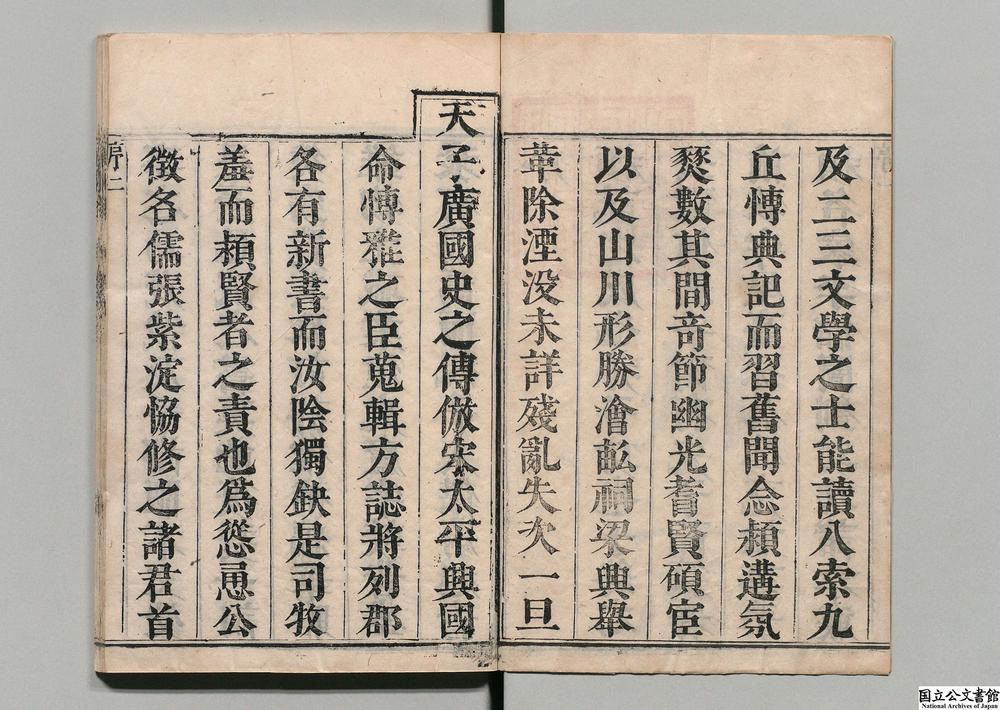 及二三文學之士能讀八索九
丘愽典記而習舊聞念潁遘氛
爕數其間竒節幽光耆賢碩宦
以及山川形勝澮畆祠梁興舉
葦除湮没未詳殘亂失次一旦
天子廣國史之傳倣宋太平興國
命愽雅之臣蒐輯方誌將列郡
各有新書而汝隂獨缺是司牧
羞而潁賢者之責也爲慫恿公
徵名儒張紫淀恊修之諸君首
序二
国立公文書館
National Archives of Japan